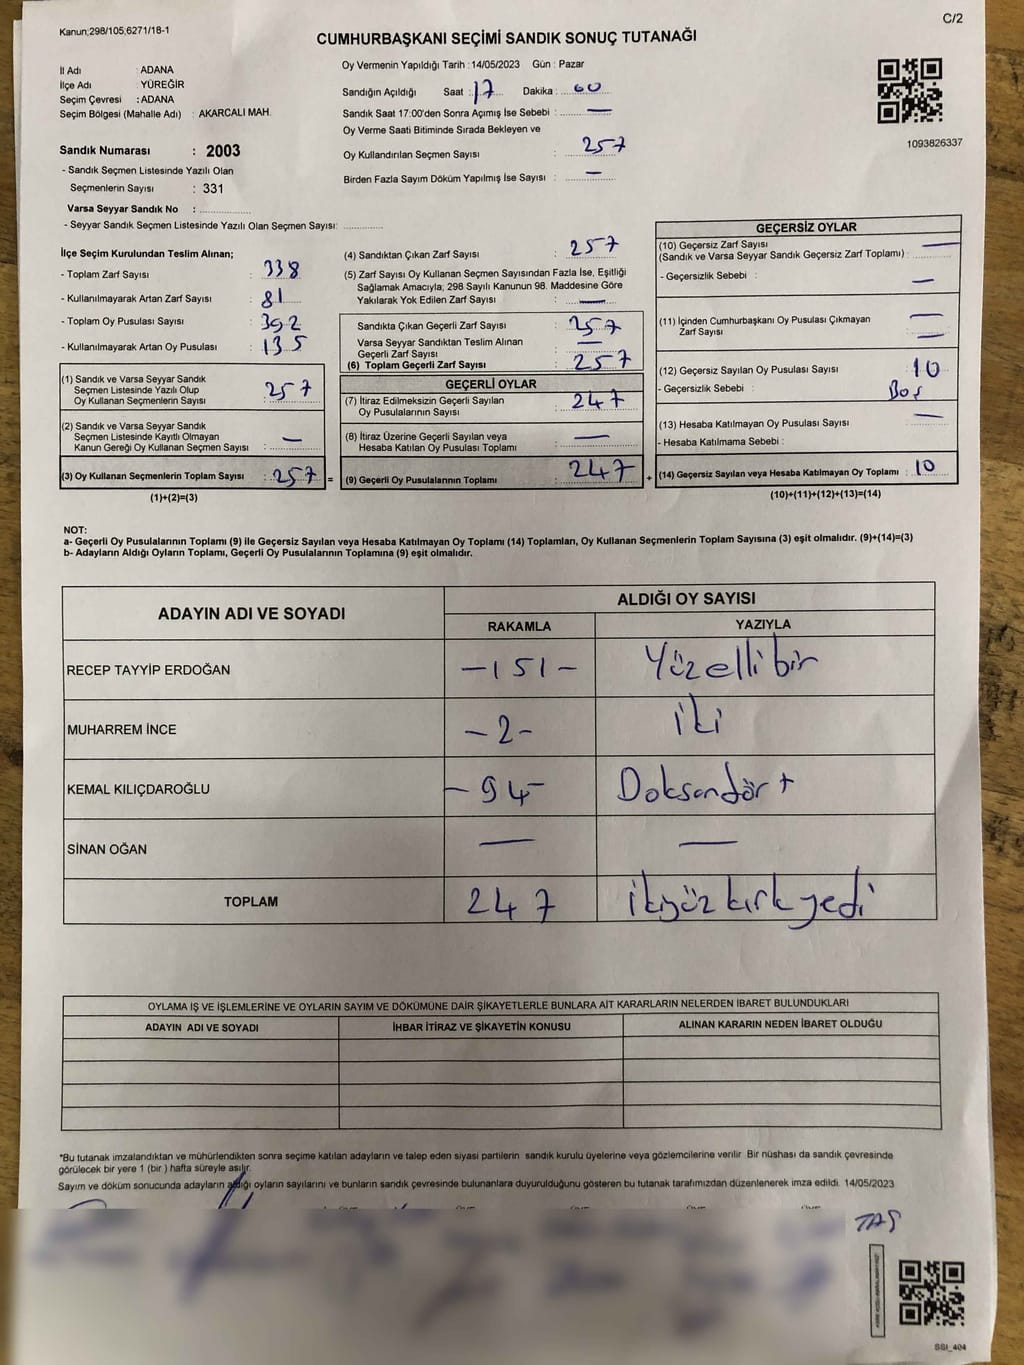 C/2
Kanun;298/105,6271/18-1
CUMHURBAŞKANI SEÇİMİ SANDIK SONUÇ TUTANAĞI
İl Adı : ADANA
İlçe Adı : YÜREĞİR
Seçim Çevresi : ADANA
Seçim Bölgesi (Mahalle Adı) : AKARCALI MAH.
Sandık Numarası : 2003
- Sandık Seçmen Listesinde Yazılı Olan
Seçmenlerin Sayısı : 331
Varsa Seyyar Sandık No :
- Seyyar Sandık Seçmen Listesinde Yazılı Olan Seçmen Sayısı:
Oy Vermenin Yapıldığı Tarih : 14/05/2023 Gün : Pazar
Sandığın Açıldığı Saat : 17 Dakika : 00
Sandık Saat 17:00'den Sonra Açımış İse Sebebi : —
Oy Verme Saati Bitiminde Sırada Bekleyen ve
Oy Kullandırılan Seçmen Sayısı : 257
Birden Fazla Sayım Döküm Yapılmış İse Sayısı : —
1093826337
İlçe Seçim Kurulundan Teslim Alınan;
- Toplam Zarf Sayısı : 338
- Kullanılmayarak Artan Zarf Sayısı : 81
- Toplam Oy Pusulası Sayısı : 392
- Kullanılmayarak Artan Oy Pusulası : 135
(1) Sandık ve Varsa Seyyar Sandık
Seçmen Listesinde Yazılı Olup
Oy Kullanan Seçmenlerin Sayısı : 257
(2) Sandık ve Varsa Seyyar Sandık
Seçmen Listesinde Kayıtlı Olmayan
Kanun Gereği Oy Kullanan Seçmen Sayısı : —
(3) Oy Kullanan Seçmenlerin Toplam Sayısı : 257 =
(1)+(2)=(3)
(4) Sandıktan Çıkan Zarf Sayısı : 257
(5) Zarf Sayısı Oy Kullanan Seçmen Sayısından Fazla İse, Eşitliği
Sağlamak Amacıyla; 298 Sayılı Kanunun 98. Maddesine Göre
Yakılarak Yok Edilen Zarf Sayısı : —
Sandıkta Çıkan Geçerli Zarf Sayısı : 257
Varsa Seyyar Sandıktan Teslim Alınan
Geçerli Zarf Sayısı : —
(6) Toplam Geçerli Zarf Sayısı : 257
GEÇERLİ OYLAR
(7) İtiraz Edilmeksizin Geçerli Sayılan
Oy Pusulalarının Sayısı : 247
(8) İtiraz Üzerine Geçerli Sayılan veya
Hesaba Katılan Oy Pusulası Toplamı : —
(9) Geçerli Oy Pusulalarının Toplamı : 247 +
GEÇERSİZ OYLAR
(10) Geçersiz Zarf Sayısı —
(Sandık ve Varsa Seyyar Sandık Geçersiz Zarf Toplamı) :
- Geçersizlik Sebebi : —
(11) İçinden Cumhurbaşkanı Oy Pusulası Çıkmayan —
Zarf Sayısı : —
(12) Geçersiz Sayılan Oy Pusulası Sayısı : 10
- Geçersizlik Sebebi : Boş
(13) Hesaba Katılmayan Oy Pusulası Sayısı : —
- Hesaba Katılmama Sebebi :
(14) Geçersiz Sayılan veya Hesaba Katılmayan Oy Toplamı : 10
(10)+(11)+(12)+(13)=(14)
NOT:
a- Geçerli Oy Pusulalarının Toplamı (9) ile Geçersiz Sayılan veya Hesaba Katılmayan Oy Toplamı (14) Toplamları, Oy Kullanan Seçmenlerin Toplam Sayısına (3) eşit olmalıdır. (9)+(14)=(3)
b- Adayların Aldığı Oyların Toplamı, Geçerli Oy Pusulalarının Toplamına (9) eşit olmalıdır.
ADAYIN ADI VE SOYADI ALDIĞI OY SAYISI
RAKAMLA YAZIYLA
RECEP TAYYİP ERDOĞAN -151- Yüzellibir
MUHARREM İNCE -2- İki
KEMAL KILIÇDAROĞLU -94- Doksandört
SİNAN OĞAN — —
TOPLAM 247 ikiyüz kırk yedi
OYLAMA İŞ VE İŞLEMLERİNE VE OYLARIN SAYIM VE DÖKÜMÜNE DAİR ŞİKAYETLERLE BUNLARA AİT KARARLARIN NELERDEN İBARET BULUNDUKLARI
ADAYIN ADI VE SOYADI İHBAR İTİRAZ VE ŞİKAYETİN KONUSU ALINAN KARARIN NEDEN İBARET OLDUĞU
*Bu tutanak imzalandıktan ve mühürlendikten sonra seçime katılan adayların ve talep eden siyasi partilerin sandık kurulu üyelerine veya gözlemcilerine verilir. Bir nüshası da sandık çevresinde
görülecek bir yere 1 (bir) hafta süreyle asılır.
Sayım ve döküm sonucunda adayların aldığı oyların sayılarını ve bunların sandık çevresinde bulunanlara duyurulduğunu gösteren bu tutanak tarafımızdan düzenlenerek imza edildi. 14/05/2023
SSI_404